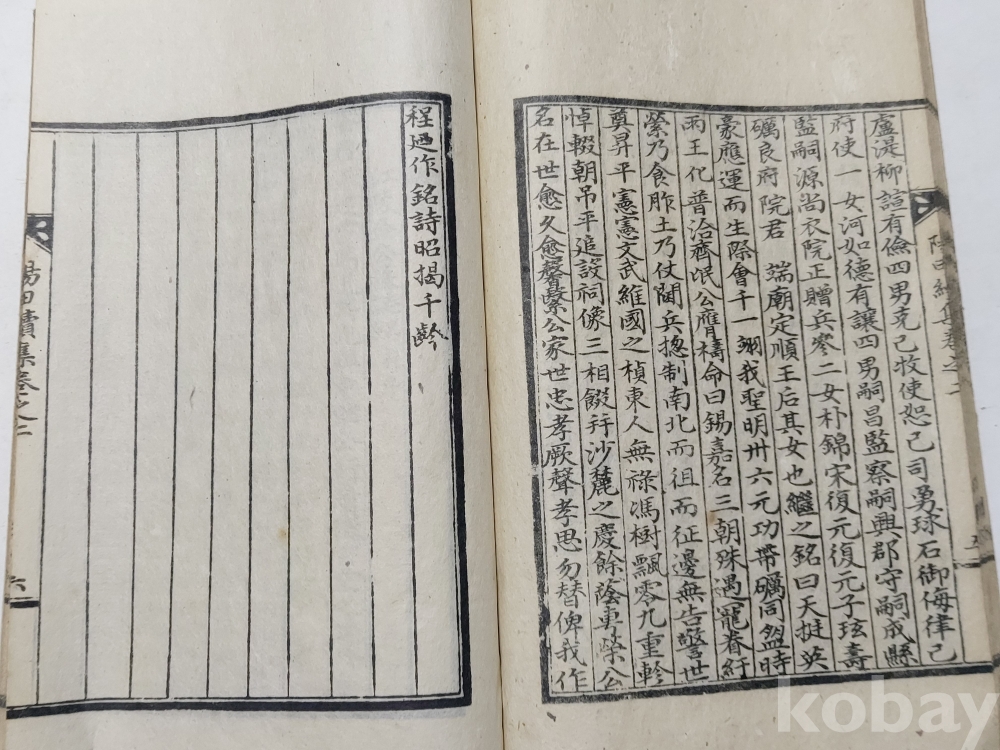 盧湜柳諠有儉四男克己牧使恕己司勇球石御侮律己
府使一女河如德有讓四男嗣昌監察嗣興郡守嗣成縣
監嗣源尚衣院正贈兵參二女朴錦宋復元復元子玹壽
礪良府院君 端廟定順王后其女也繼之銘曰天挺英
豪應運而生際會千一翊我聖明卅六元功帶礪同盟時
雨王化普洽齊氓公膺檮命曰錫嘉名三朝殊遇寵眷紆
縈乃食胙土乃仗閫兵摠制南北而徂而征邊無告警世
奠昇平憲憲文武維國之楨東人無祿馮樹飄零九重軫
悼輟朝吊平追設祠像三相餟幷沙麓之慶餘蔭專榮公
名在世愈久愈馨繄公家世忠孝厥聲孝思勿替俾我作
程迺作銘詩昭揭千齡
陽田續集卷之二
五
六
kobay